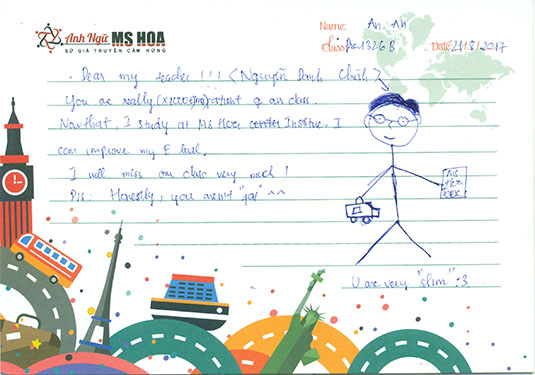 Anh Ngữ MS HOA
SỨ GIẢ TRUYỀN CẢM HỨNG
Name: An An
Class: Pre 1326 B Date: 21/8/2017
Dear my teacher !!! (Nguyễn Danh Chính)
You are really of our class.
Now that, I study at Ms Hoa center I
can improve my E level.
I will miss our class very much !
P/s: Honestly, you aren't " " ^^
MS
HOA
U are very "slim" :3